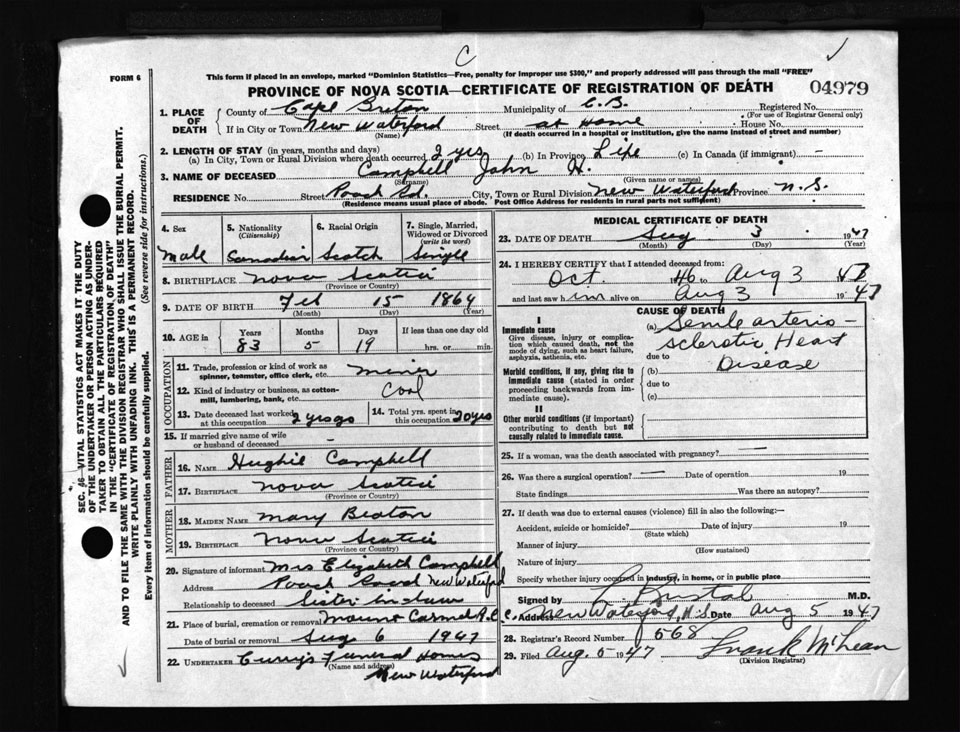 C
FORM 6
This form if placed in an envelope, marked "Dominion Statistics—Free, penalty for improper use $300," and properly addressed will pass through the mail "FREE"
PROVINCE OF NOVA SCOTIA—CERTIFICATE OF REGISTRATION OF DEATH 04979
1. PLACE OF DEATH
County of Cape Breton Municipality of C.B. Registered No.
(For use of Registrar General only)
If in City or Town New Waterford Street at Home House No.
(Name) (If death occurred in a hospital or institution, give the name instead of street and number)
2. LENGTH OF STAY (in years, months and days)
(a) In City, Town or Rural Division where death occurred 2 yrs (b) In Province Life (c) In Canada (if immigrant) —
3. NAME OF DECEASED Campbell John H.
(Surname) (Given name or names)
RESIDENCE No. Street Rd. City, Town or Rural Division New Waterford Province N.S.
(Residence means usual place of abode. Post Office Address for residents in rural parts not sufficient)
4. Sex
Male
5. Nationality
(Citizenship)
Canadian
6. Racial Origin
Scotch
7. Single, Married, Widowed or Divorced
(write the word)
Single
8. BIRTHPLACE Nova Scotia
(Province or Country)
9. DATE OF BIRTH Feb 15 1864
(Month) (Day) (Year)
10. AGE in Years Months Days If less than one day old
83 5 19 hrs. or min.
OCCUPATION
11. Trade, profession or kind of work as spinner, teamster, office clerk, etc. miner
12. Kind of industry or business, as cotton-mill, lumbering, bank, etc. Coal
13. Date deceased last worked at this occupation 2 yrs ago
14. Total yrs. spent in this occupation 20 yrs
15. If married give name of wife or husband of deceased
FATHER
16. NAME Hughie Campbell
17. BIRTHPLACE Nova Scotia
(Province or Country)
MOTHER
18. MAIDEN NAME Mary Beaton
19. BIRTHPLACE Nova Scotia
(Province or Country)
20. Signature of informant Mrs Elizabeth Campbell
Address New Waterford
Relationship to deceased Sister in-law
21. Place of burial, cremation or removal Mount Carmel R.C.C.
Date of burial or removal Aug 6 1947
22. UNDERTAKER Curry's Funeral Homes
(Name and address)
New Waterford
MEDICAL CERTIFICATE OF DEATH
23. DATE OF DEATH Aug 3 1947
(Month) (Day) (Year)
24. I HEREBY CERTIFY that I attended deceased from:
Oct. 46 to Aug 3
and last saw him alive on Aug 3 1947
CAUSE OF DEATH
I
Immediate cause
Give disease, injury or complication which caused death, not the mode of dying, such as heart failure, asphyxia, asthenia, etc.
(a) Senile arterio-
sclerotic Heart
due to
Disease
Morbid conditions, if any, giving rise to immediate cause (stated in order proceeding backwards from immediate cause).
(b)
due to
(c)
II
Other morbid conditions (if important) contributing to death but not causally related to immediate cause.
25. If a woman, was the death associated with pregnancy? —
26. Was there a surgical operation? — Date of operation 19
State findings Was there an autopsy?
27. If death was due to external causes (violence) fill in also the following:—
Accident, suicide or homicide? Date of injury 19
(State which)
Manner of injury
(How sustained)
Nature of injury
Specify whether injury occurred in industry, in home, or in public place
Signed by M.D.
Address New Waterford, N.S. Date Aug 5 1947
28. Registrar's Record Number 568
29. Filed Aug. 5 1947 Frank McLean
(Division Registrar)
SEC. 16—VITAL STATISTICS ACT MAKES IT THE DUTY
OF THE UNDERTAKER OR PERSON ACTING AS UNDER-
TAKER TO OBTAIN ALL THE PARTICULARS REQUIRED
IN THE "CERTIFICATE OF REGISTRATION OF DEATH"
AND TO FILE THE SAME WITH THE DIVISION REGISTRAR WHO SHALL ISSUE THE BURIAL PERMIT.
WRITE PLAINLY WITH UNFADING INK. THIS IS A PERMANENT RECORD.
Every item of information should be carefully supplied. (See reverse side for instructions.)